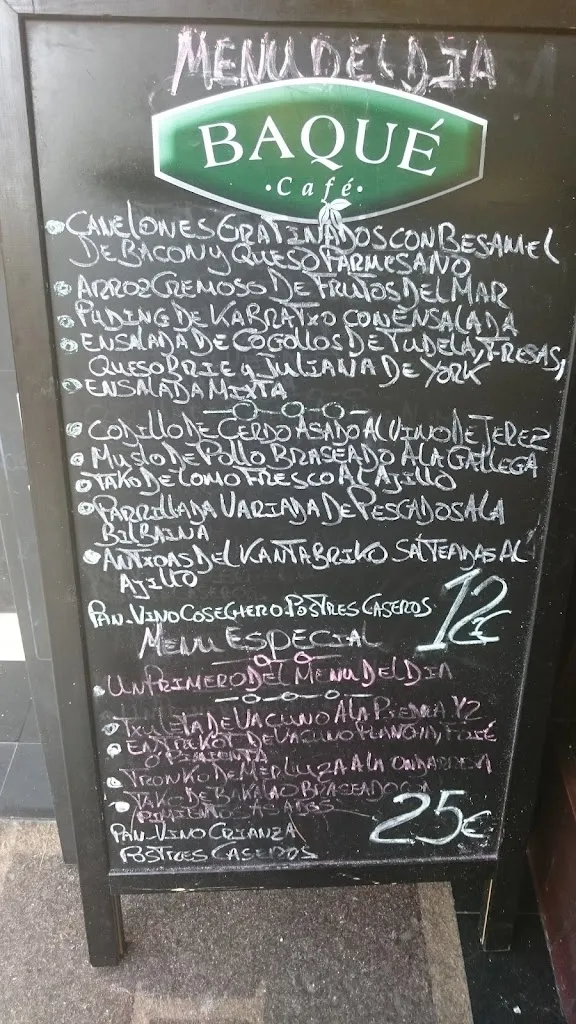 MENU DEL DIA
BAQUÉ
Café
CANELONES GRATINADOS CON BESAMEL
DE BACON Y QUESO PARMESANO
ARROZ CREMOSO DE FRUTOS DEL MAR
PUDING DE KABRATXO CON ENSALADA
ENSALADA DE COGOLLOS DE TUDELA, FRESAS,
QUESO BRIE Y JULIANA DE YORK
ENSALADA MIXTA
CODILLO DE CERDO ASADO AL VINO DE JEREZ
MUSLO DE POLLO BRASEADO A LA GALLEGA
TAKO DE LOMO FRESCO AL AJILLO
PARRILLADA VARIADA DE PESCADOS A LA
BILBAINA
ANTXOAS DEL KANTABRIKO SALTEADAS AL
AJILLO
PAN-VINO COSECHERO-POSTRES CASEROS 12€
MENU ESPECIAL
UN PRIMERO DEL MENU DEL DIA
TXULETA DE VACUNO A LA PIEDRA X2
ENTREKOT DE VACUNO PLANCHA,
O PIMIENTA
TRONKO DE MERLUZA A LA ONDARRESA
TAKO DE BAKALAO BRASEADO CON
PIMIENTOS ASADOS
PAN-VINO CRIANZA 25€
POSTRES CASEROS